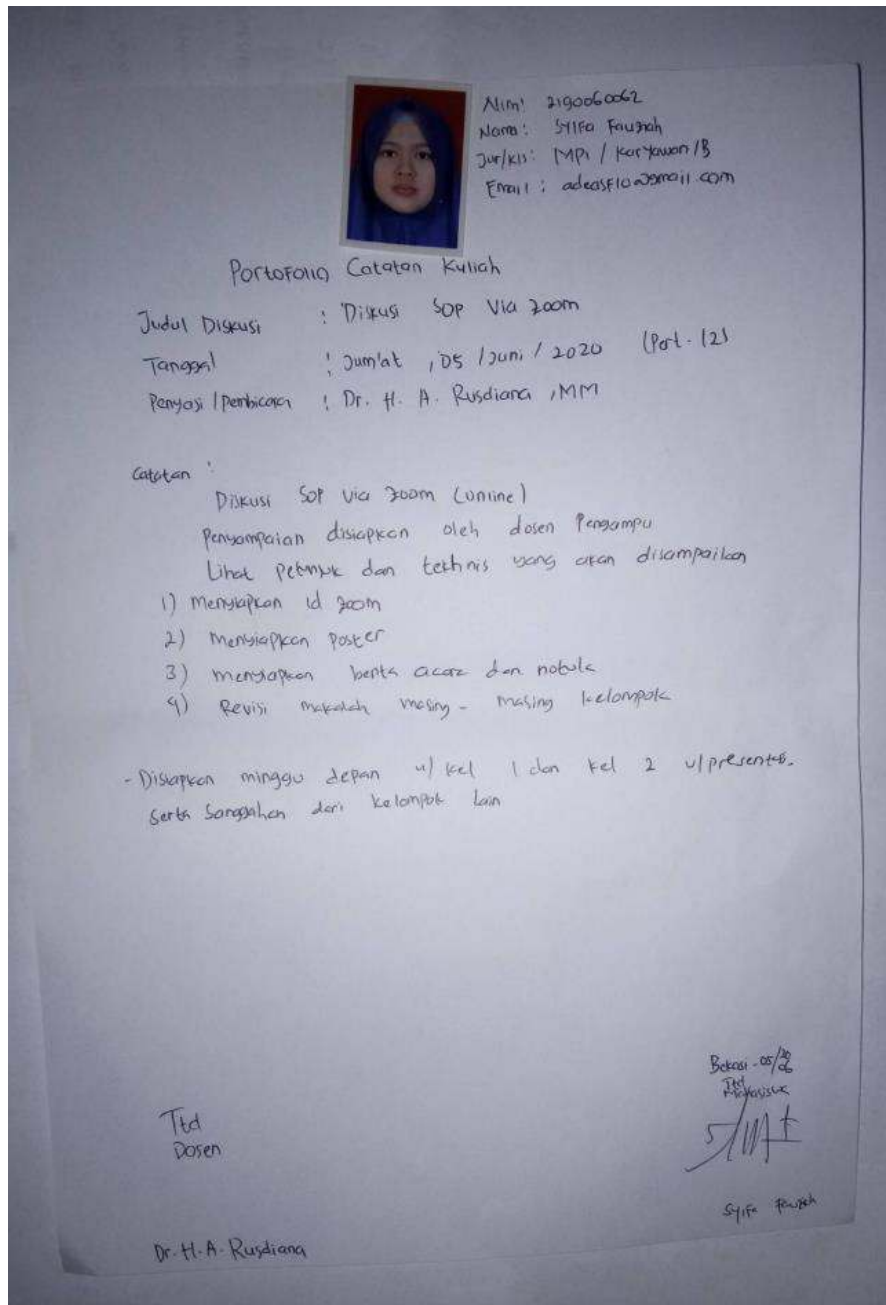 Nim: 2190060062
Nama: Syifa Fauziah
Jur/kls: MPi / Karyawan / B
Email: adeasf10@gmail.com
Portofolio Catatan Kuliah
Judul Diskusi : Diskusi SOP Via Zoom
Tanggal : Jum'at, 05 / Juni / 2020 (Pert-12)
Penyaji / Pembicara : Dr. H. A. Rusdiana, MM
Catatan :
Diskusi SOP Via Zoom (online)
Penyampaian disiapkan oleh dosen Pengampu
Lihat petunjuk dan tekhnis yang akan disampaikan
1) Menyiapkan id zoom
2) Menyiapkan Poster
3) Menyiapkan berita acara dan notula
4) Revisi makalah masing - masing kelompok
- Disiapkan minggu depan u/ kel 1 dan kel 2 u/ presentasi.
Serta Sanggahan dari kelompok lain
Bekasi - 05/06
Ttd
Mahasiswa
Ttd
Dosen
Syifa Fauziah
Dr. H. A. Rusdiana